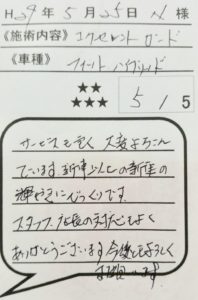 H29年5月25日 N 様
《施術内容》エクセレント ボンド
《車種》フィット ハイブリッド
★★
★★★
5 / 5
サービスも良く 大変よろこん
でいます。新車以上の新車の
輝きにびっくりです。
スタッフ、社長の対応もよく
ありがとうございます 今後もよろしく
お願います